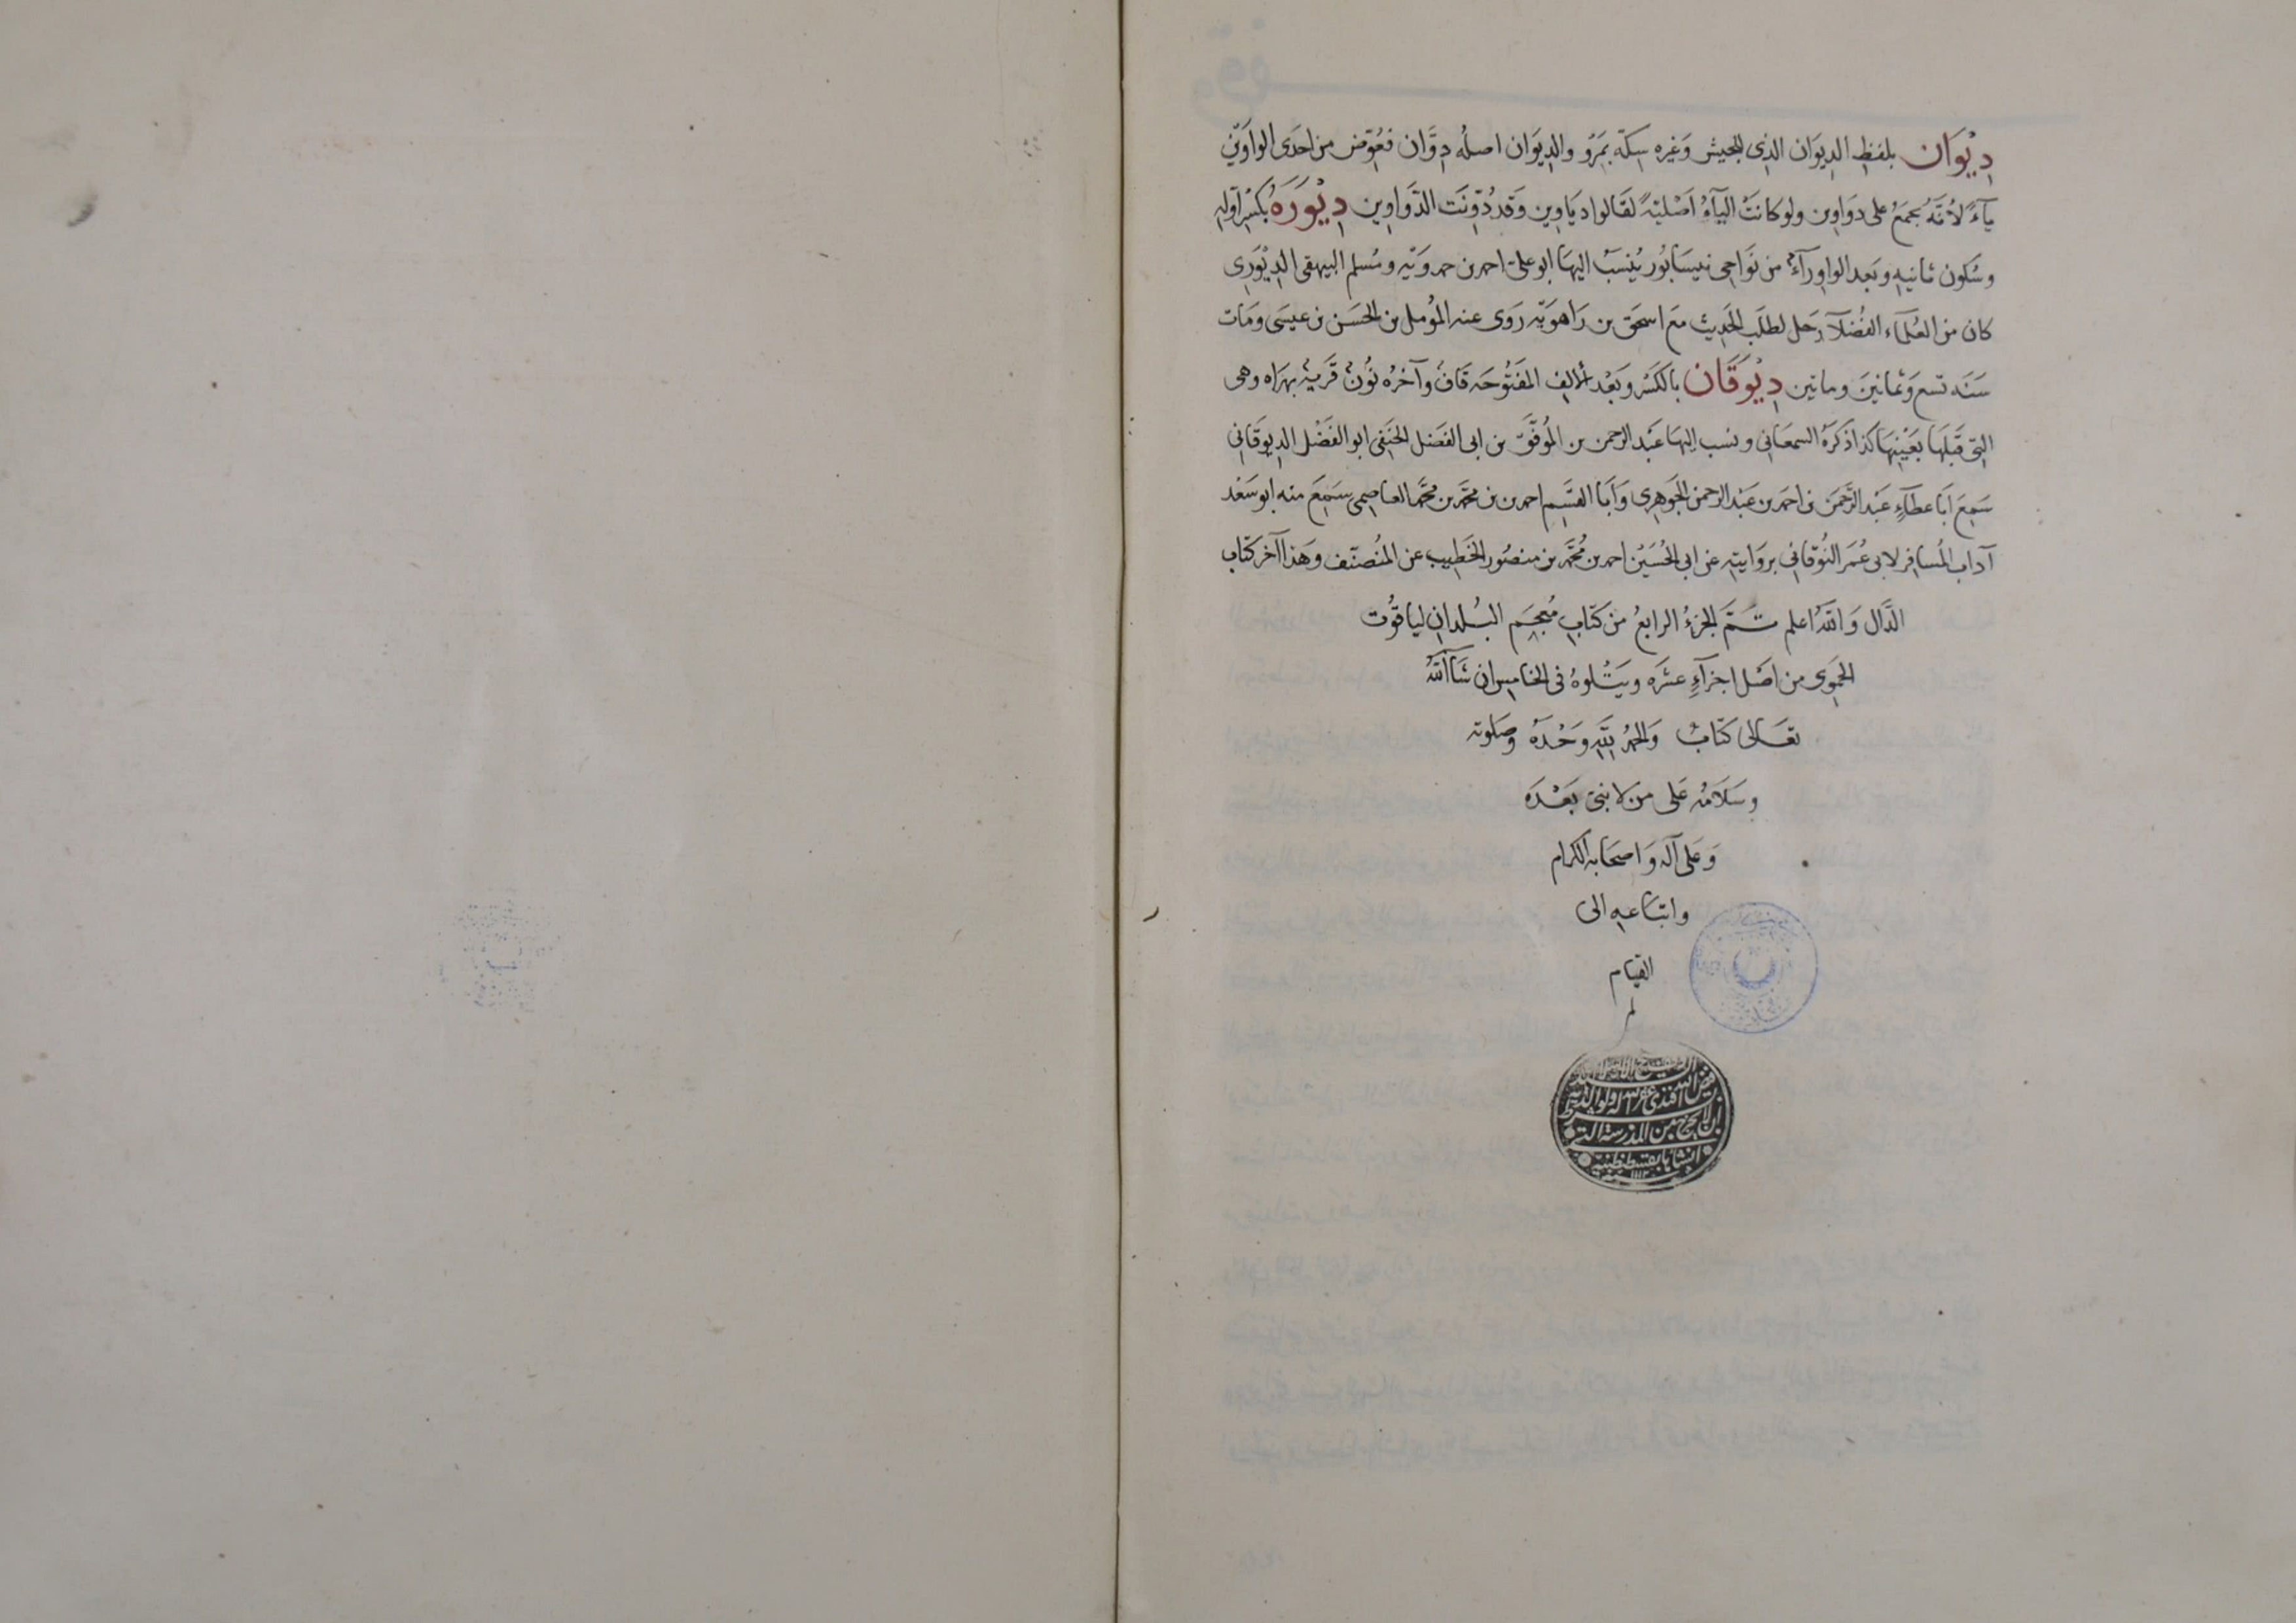 دِيْوَان بلفظِ الدِيوَان الذِى للجيش وَغيره سِكّة بَمِرْوَ والدِيوَان اصلُه دِوَّان فعُوّض من احدَى الواوَيْن
يآءً لأنّهُ يجمَعُ على دوَاوِين ولو كانتْ اليآءُ اصْليّةً لقَالوا ديَاوِين وَقد دُوّنَت الدّوَاوِين دِيْوَرَهُ بكسْر اوّلهِ
وسُكون ثانيهِ وبَعد الواوِ رآءٌ من نَوَاحِى نيسَابُور يُنسَبُ اليهَا ابو علىّ احمد بن حمدوَيْه ومُسلم البيهقى الدِيْوَرِى
كان من العُلمآء الفُضلآ رَحل لطلَبِ الحَدِيث معَ اسحَق بن رَاهوَيْه رَوى عنه المُومل بن الحَسَن بن عيسَى ومَات
سَنَه تسع وَثمانينَ وماتين دِيْوَقَان بالكَسْر وبَعْد الالِف المَفتُوحَه قَافٌ وآخرُه نُونٌ قَريَة بهرَاه وهى
التِى قَبلهَا بعَيْنِهَا كذا ذكرَهُ السمعَانى ونسب اليهَا عَبْد الرحمن بن المُوفَّق بن ابى الفَضل الحنَفِى ابو الفَضْل الدِيوقَانِى
سَمِعَ ابَا عطآءٍ عَبْد الرّحمَن بن احمَد بن عَبْد الرحمن الجَوهرِى وَابَا القسَِم احمد بن محمّد بن محمّد العاصِمى سَمِعَ منه ابو سَعْد
آدابَ المُسافِر لابى عُمَر النُوقانِى بروَايتِهِ عن ابى الحُسَيْن احمد بن مُحَمّد بن منصُور الخَطِيب عن المُصَنّف وَهَذا آخر كتَاب
الدَّال وَاللّهُ اعلم تَمّ الجزءُ الرابعُ من كتَابِ مُعجَم البُلدان لياقُوت
الحَمَوِى من اصْل اجزآءٍ عشَره ويَتْلوهُ فى الخامِس ان شَآ اللّهُ
تعَالى كتَابُ وَالحَمْدُ للّهِ وَحْدَهُ وصَلوته
وسَلَامُه عَلى من لا نبىّ بَعْدَه
وَعَلى آله وَاصحَابه الكرام
واتبَاعهِ الى
القيَام
فيض الله افندى غفر الله له ولوالديه
ان لا يخرج من المدرسة التى
انشاها بقسطنطينية
١١١٣